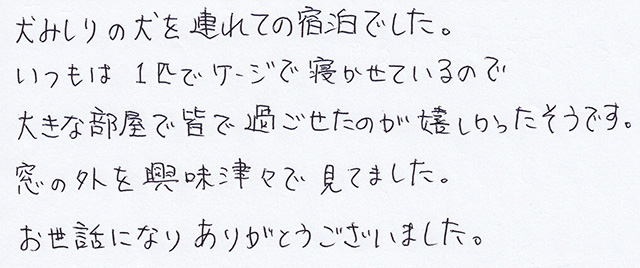 犬みしりの犬を連れての宿泊でした。
いつもは1匹でケージで寝かせているので
大きな部屋で皆で過ごせたのが嬉しかったそうです。
窓の外を興味津々で見てました。
お世話になりありがとうございました。